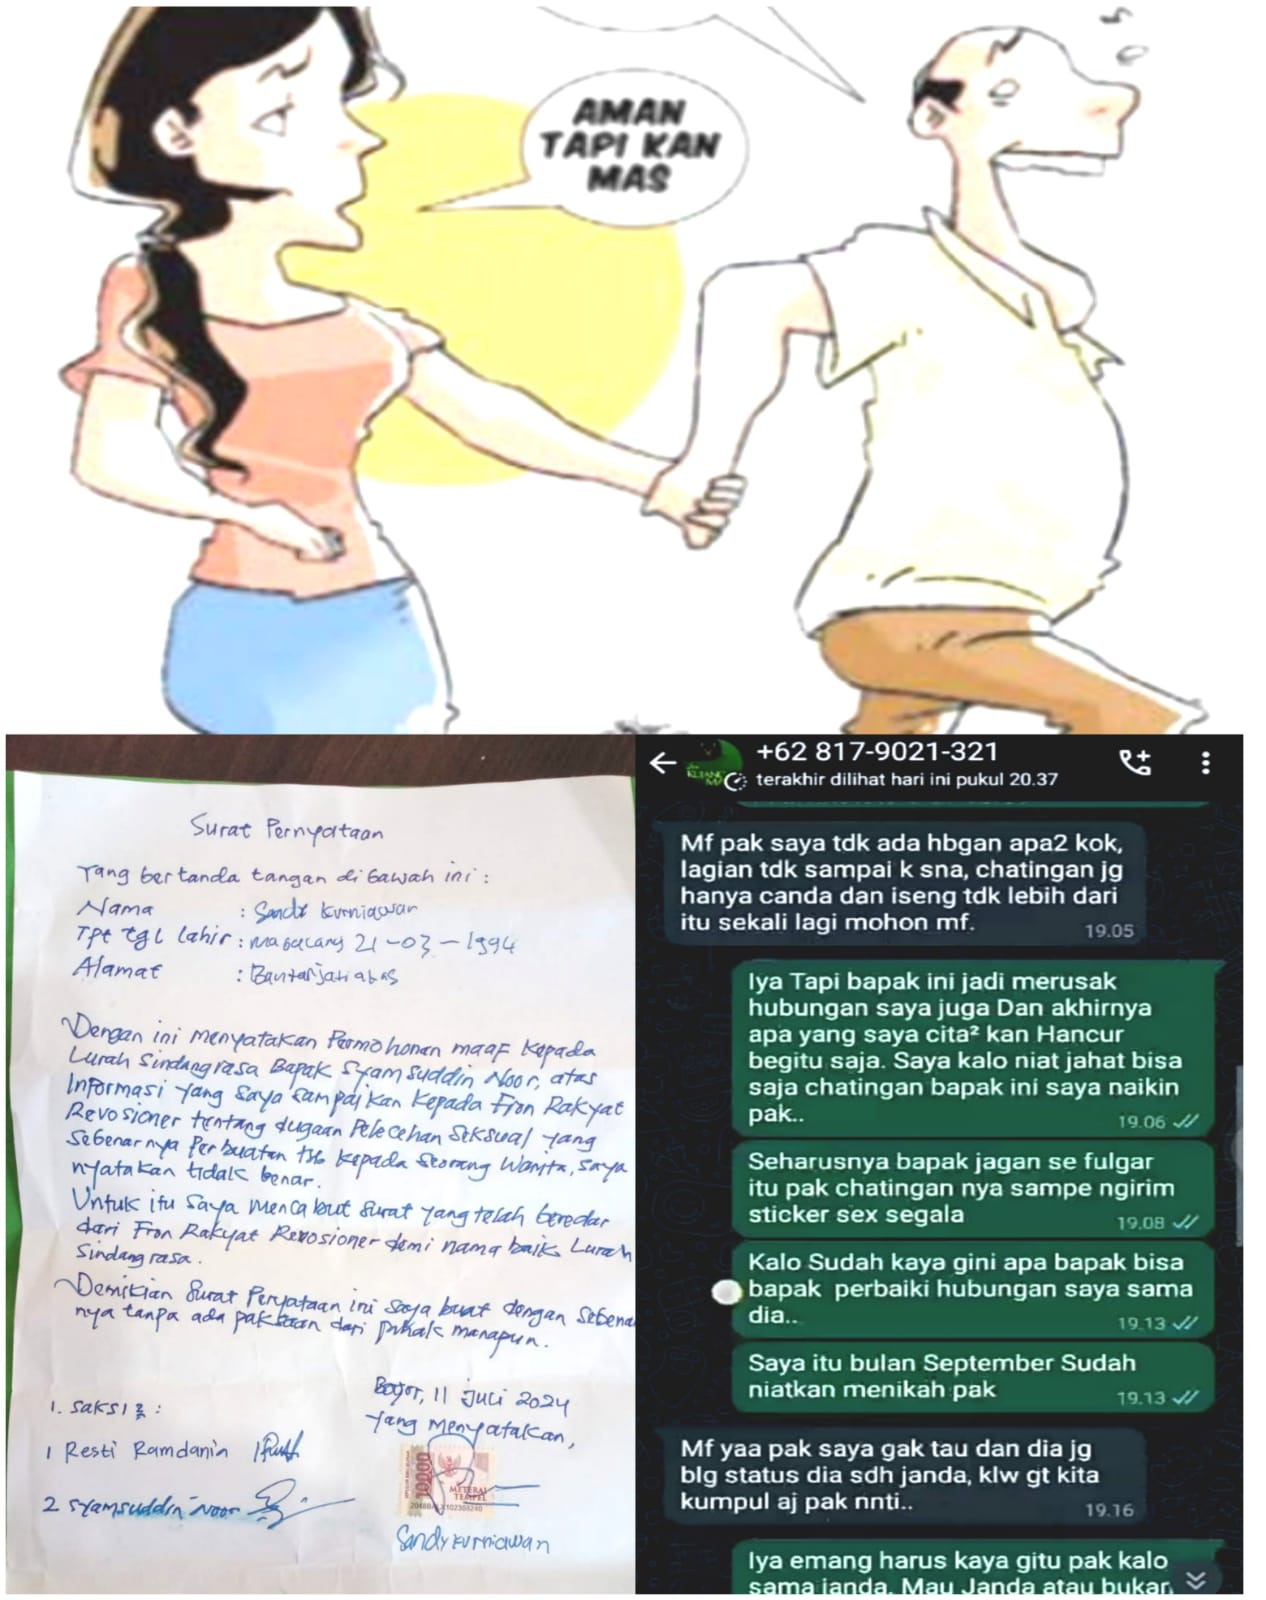 AMAN
TAPI KAN
MAS
Surat Pernyataan
Yang bertanda tangan di bawah ini :
Nama : Sandi Kurniawan
Tpt tgl lahir : Magelang 21-03-1994
Alamat : Bantarjati atas
Dengan ini menyatakan Permohonan maaf kepada
Lurah Sindangrasa Bapak Syamsuddin Noor, atas
Informasi yang saya sampaikan kepada Fron Rakyat
Revosioner tentang dugaan Pelecehan Seksual yang
sebenarnya Perbuatan tsb kepada seorang wanita, saya
nyatakan tidak benar.
Untuk itu saya mencabut surat yang telah beredar
dari Fron Rakyat Revosioner demi nama baik Lurah
Sindangrasa.
Demikian Surat Peryataan ini saya buat dengan seben
nya tanpa ada paksaan dari pihak manapun.
Bogor, 11 juli 2024
Yang menyatakan,
1. saksi 2 :
1 Resti Ramdanin
2 Syamsuddin Noor
10000
METERAI
TEMPEL
Sandy Kurniawan
+62 817-9021-321
terakhir dilihat hari ini pukul 20.37
Mf pak saya tdk ada hbgan apa2 kok,
lagian tdk sampai k sna, chatingan jg
hanya canda dan iseng tdk lebih dari
itu sekali lagi mohon mf.
19.05
Iya Tapi bapak ini jadi merusak
hubungan saya juga Dan akhirnya
apa yang saya cita² kan Hancur
begitu saja. Saya kalo niat jahat bisa
saja chatingan bapak ini saya naikin
pak..
19.06
Seharusnya bapak jagan se fulgar
itu pak chatingan nya sampe ngirim
sticker sex segala
19.08
Kalo Sudah kaya gini apa bapak bisa
bapak perbaiki hubungan saya sama
dia..
19.13
Saya itu bulan September Sudah
niatkan menikah pak
19.13
Mf yaa pak saya gak tau dan dia jg
blg status dia sdh janda, klw gt kita
kumpul aj pak nnti..
19.16
Iya emang harus kaya gitu pak kalo
sama janda. Mau Janda atau bukan